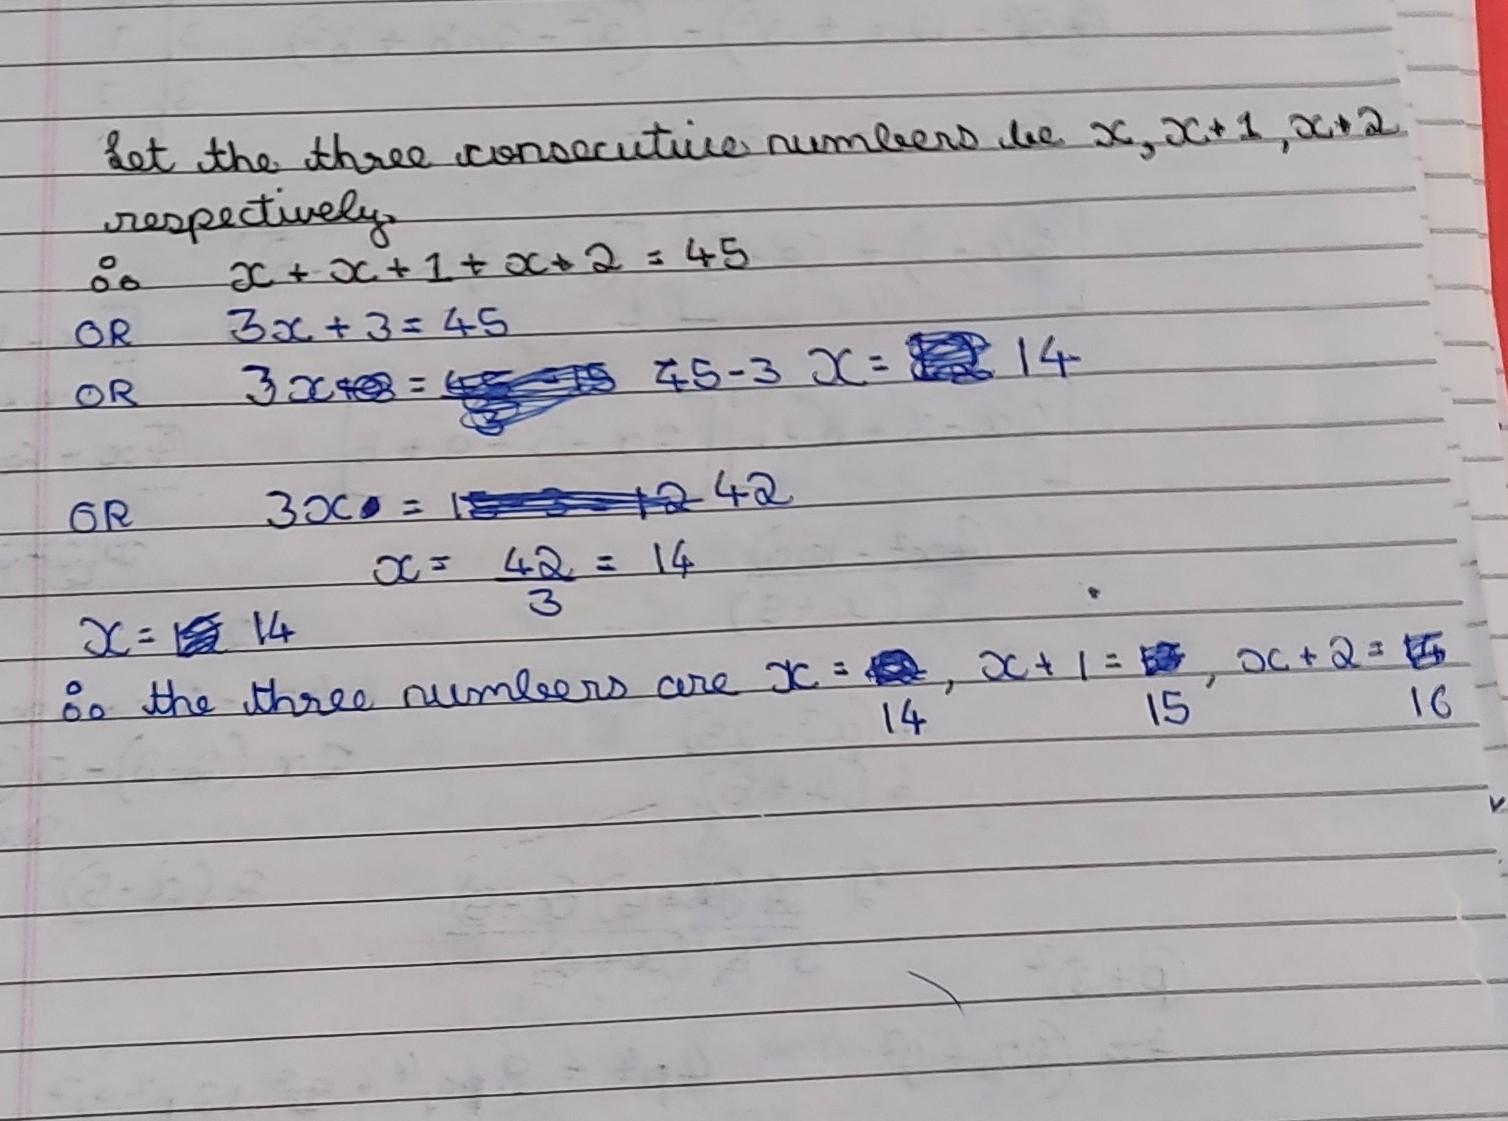 Let the three consecutive numbers be x, x+1, x+2
respectively.
∴ x + x + 1 + x + 2 = 45
OR 3x + 3 = 45
OR 3x = 45-3 x = 14
OR 3x = 42
x = 42/3 = 14
x = 14
∴ the three numbers are x = 14, x + 1 = 15, x + 2 = 16